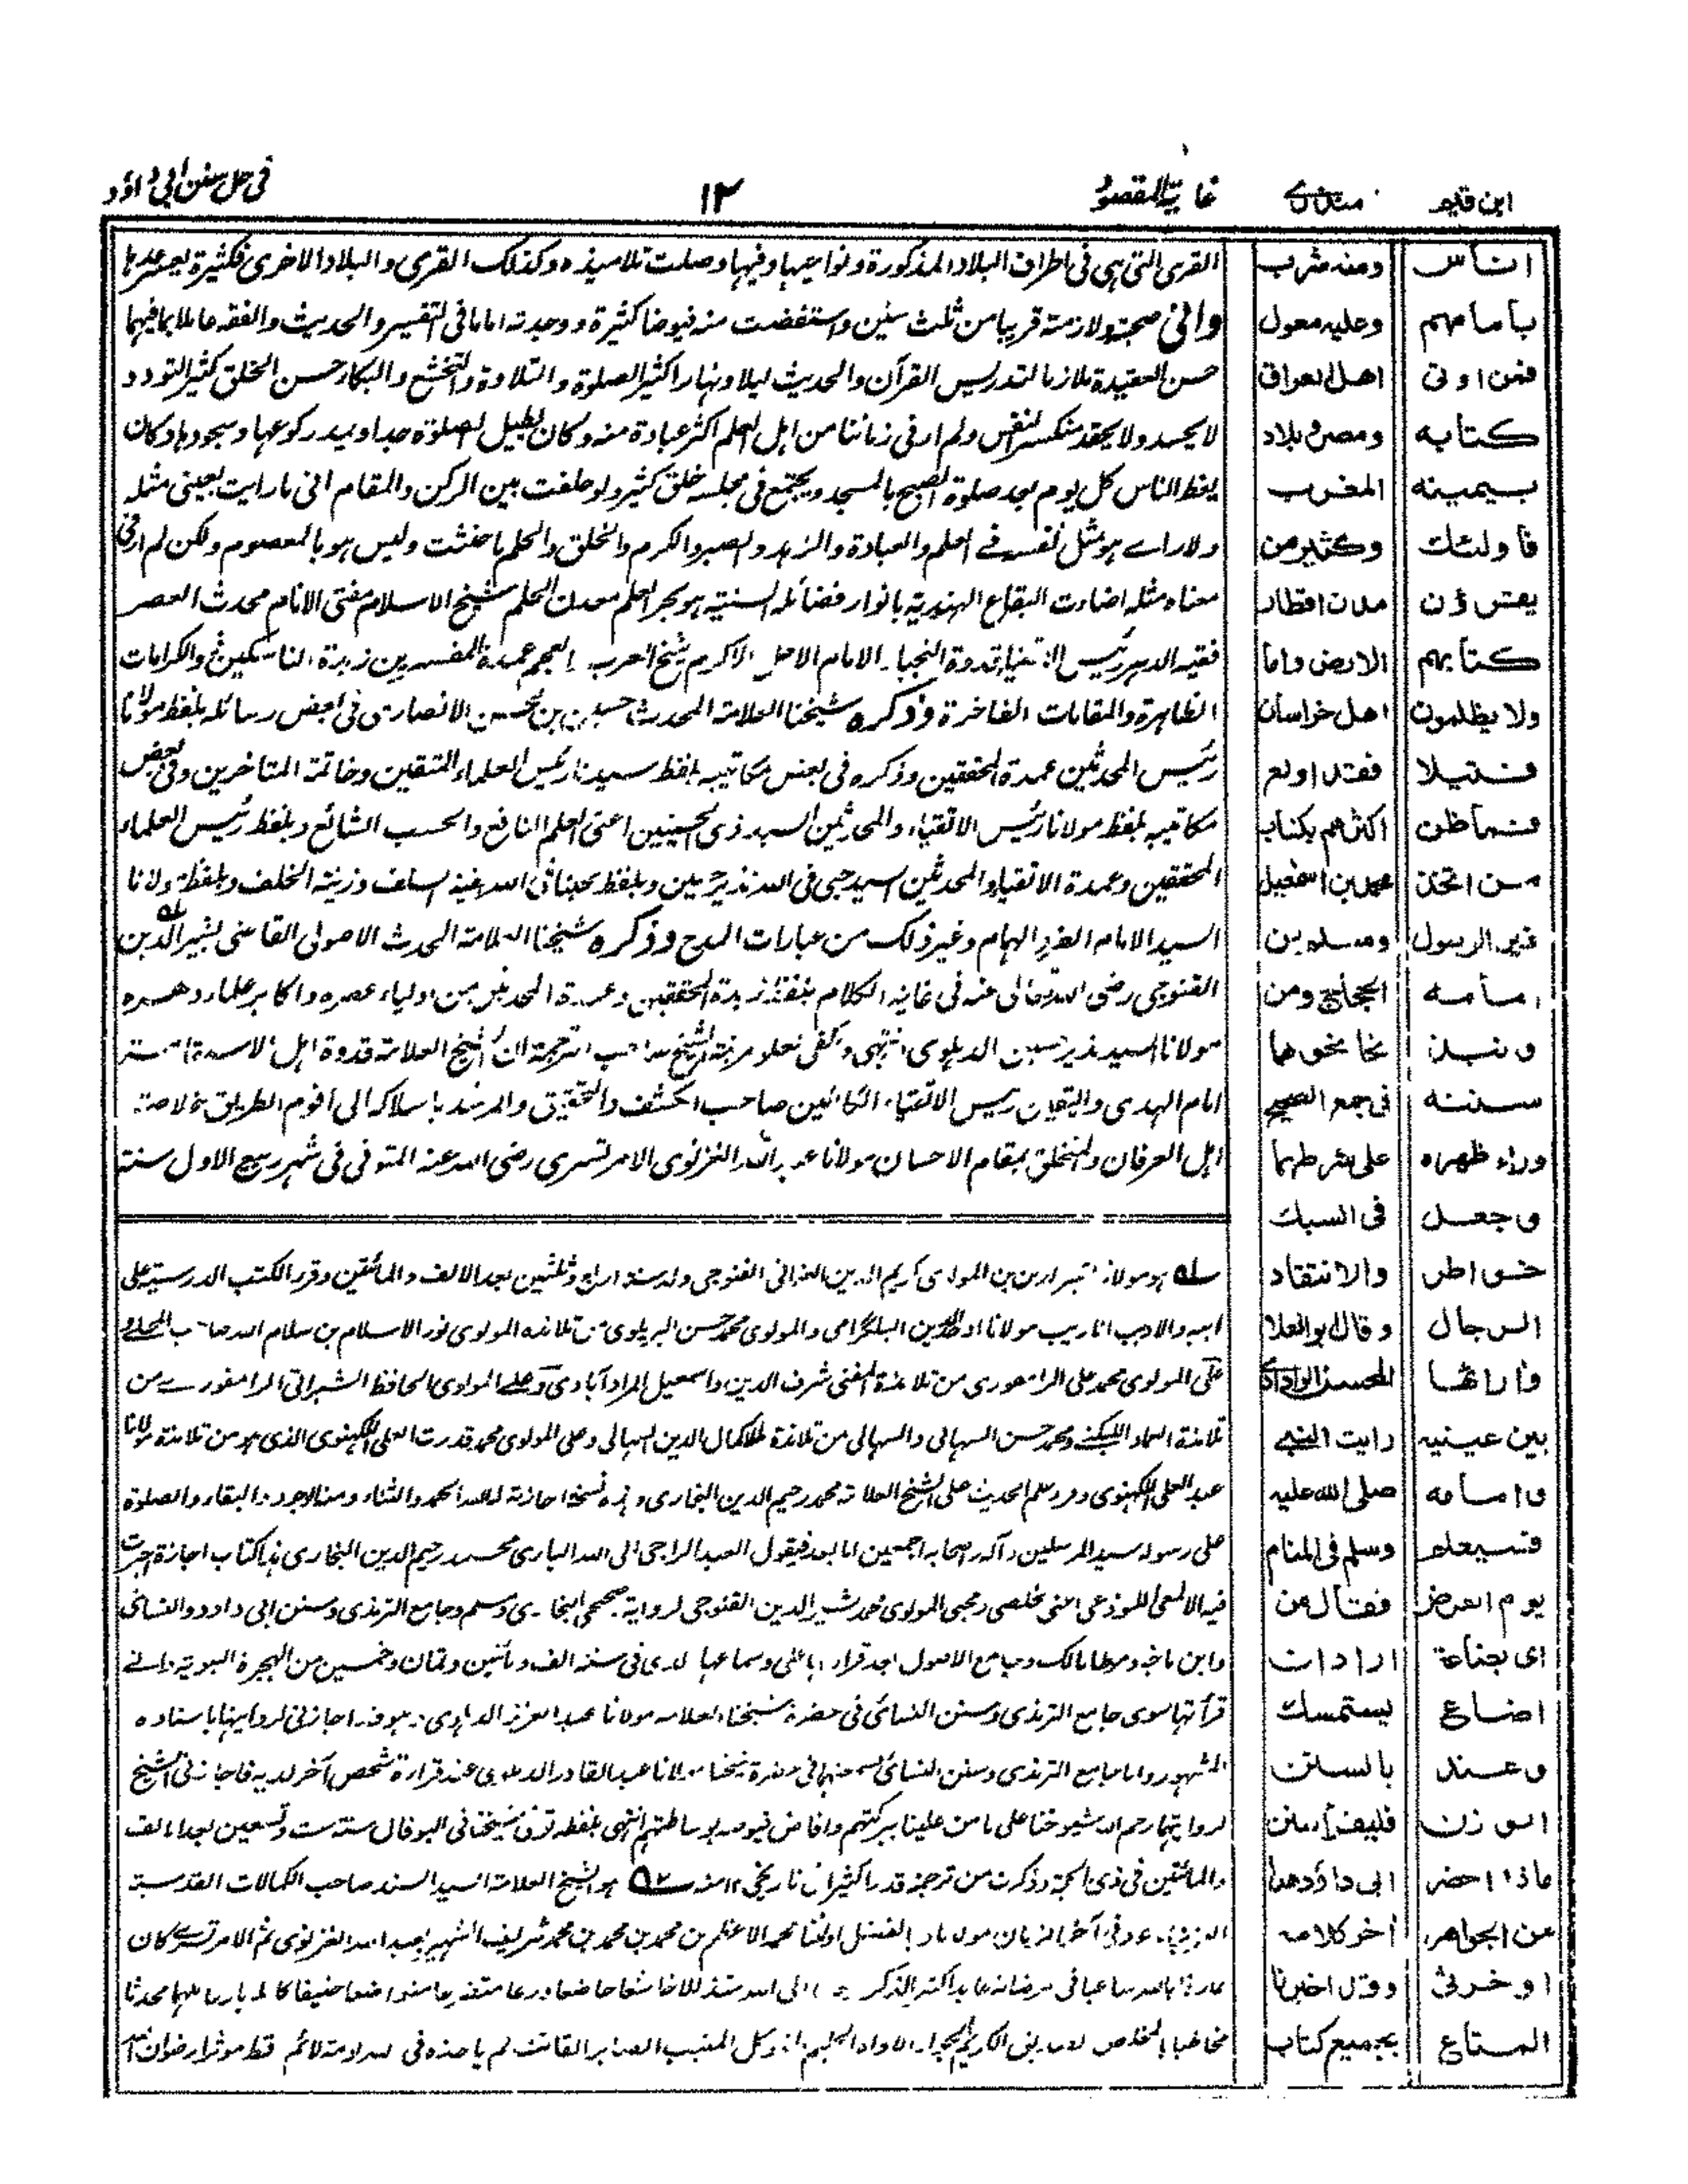 ابن قيم
منذري
غاية المقصود
١٢
في حل سنن ابي داؤد
اناس
بامامهم
فمن اوتى
كتابه
بيمينه
فاولئك
يقرؤن
كتابهم
ولا يظلمون
فتيلا
فما ظن
من اتخذ
غير الرسول
امامه
ونبذ
سنته
وراء ظهره
وجعل
خواطر
الرجال
وآراءها
بين عينيه
وامامه
فسيعلم
يوم العرض
اى بضاعة
اضاع
وعند
الوزن
ماذا احضر
من الجواهر
او خرثى
المتاع
ومنه شرب
وعليه معول
اهل العراق
ومصر وبلاد
المغرب
وكثير من
مدن اقطار
الارض واما
اهل خراسان
فقد اولع
اكثرهم بكتاب
محمد بن اسمعيل
ومسلم بن
الحجاج ومن
نحا نحوهما
فى جمع الصحيح
على شرطهما
فى السبك
والانتقاد
وقال ابو العلا
المحسن الوادارى
رايت النبي
صلى الله عليه
وسلم فى المنام
فقال من
اراد ان
يستمسك
بالسنن
فليقرأ سنن
ابى داؤد هذا
آخر كلامه
وقد اخبرنا
بجميع كتاب
القرى التى هى فى اطراف البلاد المذكورة ونواحيها وفيها وصلت تلاميذه وكذلك القرى والبلاد الاخرى فكثيرة يعسر عدها
وانى صحبته ولازمته قريبا من ثلث سنين واستفضت منه فيوضا كثيرة ووجدته اماما فى التفسير والحديث والفقه عاملا بما فيهما
حسن العقيدة ملازما لتدريس القرآن والحديث ليلا ونهارا كثير الصلوة والتلاوة والتخشع والبكاء حسن الخلق كثير التودد
لا يحسد ولا يحقد منكسر النفس ولم ار فى زماننا من اهل العلم اكثر عبادة منه وكان يطيل الصلوة جدا ويمد ركوعها وسجودها وكان
يعظ الناس كل يوم بعد صلوة الصبح بالمسجد ويجتمع فى مجلسه خلق كثير ولو حلفت بين الركن والمقام انى ما رايت بعينى مثله
ولا راے هو مثل نفسه فے العلم والعبادة والزهد والصبر والكرم والخلق والحلم ما حنثت وليس هو بالمعصوم ولكن لم ار فى
معناه مثله اضاءت البقاع الهندية بانوار فضائله السنية هو بحر العلم معدن الحلم شيخ الاسلام مفتى الانام محدث العصر
فقيه الدهر رئيس الاتقياء قدوة النجباء الامام الاجل الاكرم شيخ العرب والعجم عمدة المفسرين زبدة الناسكين ذو الكرامات
الظاهرة والمقامات الفاخرة وذكره شيخنا العلامة المحدث حسين بن محسن الانصارى فى بعض رسائله بلفظ مولانا
رئيس المحدثين عمدة المحققين وذكره فى بعض مكاتيبه بلفظ سيدنا رئيس العلماء المتقين وخاتمة المتاخرين وفى بعض
مكاتيبه بلفظ مولانا رئيس الاتقياء والمحدثين السيد ذى الحسبين اعنى العلم النافع والحسب الشائع وبلفظ رئيس العلماء
المحققين وعمدة الاتقياء والمحدثين السيد حبى فى الله نذير حسين وبلفظ محبنا فى الله بقية السلف وزينة الخلف وبلفظ مولانا
السيد الامام الفرد الهمام وغير ذلك من عبارات المدح وذكره شيخنا العلامة المحدث الاصولى القاضى بشير الدين
القنوجى رضى الله تعالى عنه فى غاية الكلام بلفظ زبدة المحققين وعمدة المحدثين من اولياء عصره واكابر علماء دهره
مولانا السيد نذير حسين الدهلوى انتهى وكفى لعلو مرتبة الشيخ صاحب الترجمة ان الشيخ العلامة قدوة اهل
امام الهدى رئيس الاتقياء صاحب الكشف والتحقيق والمرشد باسلاكه الى اقوم الطريق خلاصة
اهل العرفان والمتخلق بمقام الاحسان مولانا عبد الله الغزنوى الامرتسرى رضى الله عنه المتوفى فى شهر ربيع الاول سنة
هو مولانا بشير الدين بن المولوى كريم الدين العثمانى القنوجى ولد سنة اربع وثلثين بعد الالف والمائتين وقرء الكتب الدرسية على
ابيه والاديب الاريب مولانا اوحد الدين البلگرامى والمولوى محمد حسن البريلوى من تلامذة المولوى نور الاسلام بن سلام الله صاحب المحلى و
على المولوى محمد على الرامفورى من تلامذة المفتى شرف الدين واسمعيل المرادآبادى وعلى المولوى الحافظ الشبراتى الرامفورے من
تلامذة العماد اللبكنى ومحمد حسن السهالى والسهالى من تلامذة الملا كمال الدين السهالى وعلى المولوى محمد قدرت العلى اللكهنوى الذى هو من تلامذة مولانا
عبد العلى اللكهنوى وقرء علم الحديث على الشيخ العلامة محمد رحيم الدين البخارى وهذه نسخة اجازته لله الحمد والثناء ومنه الوجود والبقاء والصلوة
على رسوله سيد المرسلين وآله واصحابه اجمعين اما بعد فيقول العبد الراجى الى الله البارى محمد رحيم الدين البخارى هذا كتاب اجازة اجزت
فيه الالمعى اللوذعى اعنى مخلصى ومحبى المولوى محمد بشير الدين القنوجى لرواية صحيحى البخارى ومسلم وجامع الترمذى وسنن ابى داود والنسائى
وابن ماجه وموطا مالك وجامع الاصول بعد قراءتها على وسماعها لدى فى سنة الف ومأتين وثمان وخمسين من الهجرة النبوية وانے
قرأتها سوى جامع الترمذى وسنن النسائى فى حضرة شيخنا العلامة مولانا عبد العزيز الدهلوى وهو قد اجازنى لروايتها باسناده
المشهور واما جامع الترمذى وسنن النسائى سمعتهما فى حضرة شيخنا مولانا عبد القادر الدهلوى عند قراءة شخص آخر لديه فاجازنى الشيخ
لروايتها رحم الله شيوخنا على ما من علينا ببركتهم وافاض فيوضه بوساطتهم انتهى بلفظه توفى شيخنا فى البوفال سنة ست وتسعين بعد الالف
والمائتين فى ذى الحجة وذكرت من ترجمته قدرا كثيرا فى تاريخى ١٢ منه ٥٢ هو الشيخ العلامة السيد السند صاحب الكمالات القدسية
فى آخر الزمان محمد الاعظم بن محمد بن محمد بن محمد شريف الشهير بعبد الله الغزنوى ثم الامرتسرى كان